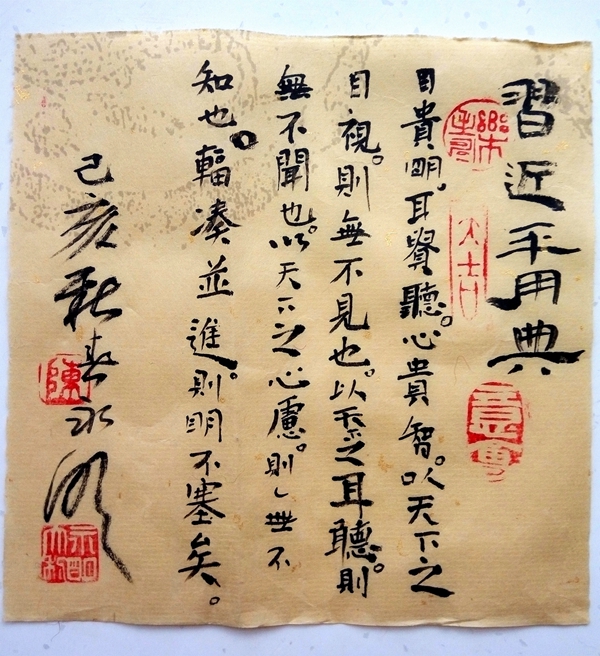 習近平用典
目貴明。耳貴聽。心貴智。以天下之
目視。則無不見也。以天下之耳聽。則
無不聞也。以天下之心慮。則無不
知也。輻湊並進。則明不塞矣。
己亥秋
大吉
意會
陳